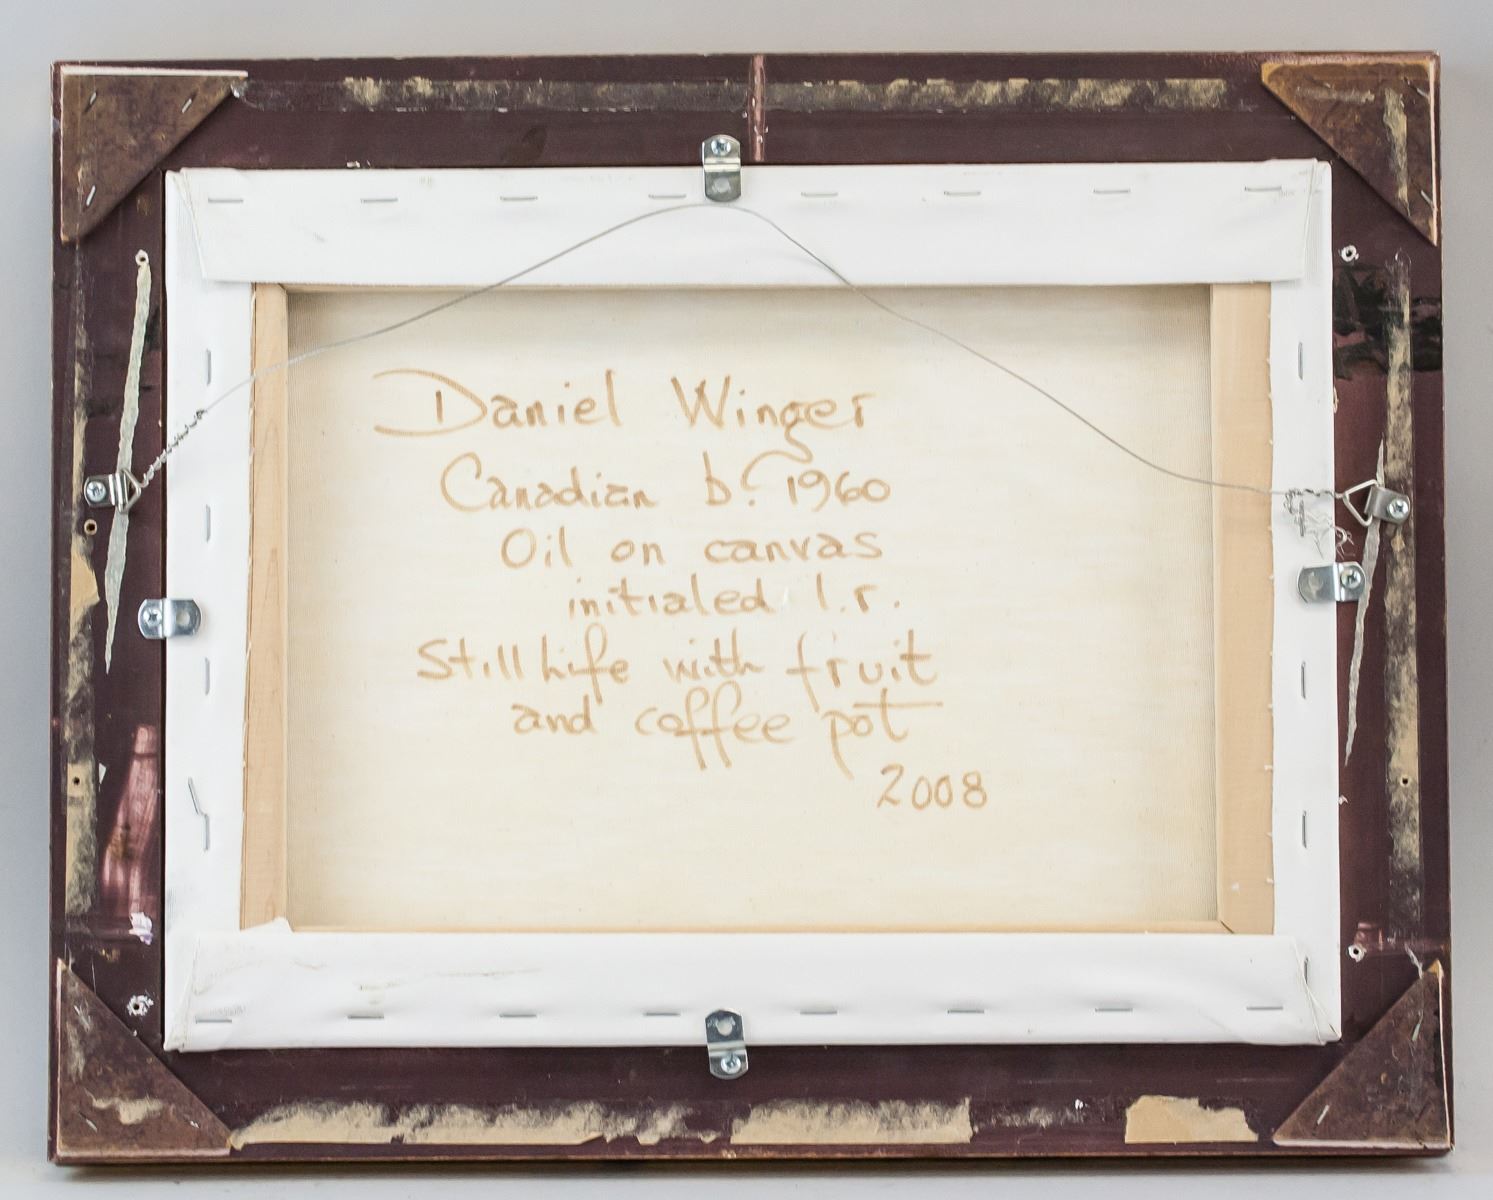 Daniel Winger
Canadian b. 1960
Oil on canvas
initialed l.r.
Still Life with fruit
and coffee pot
2008